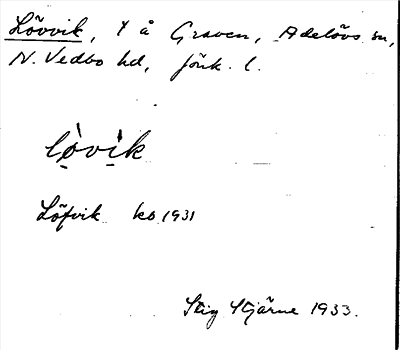 Lövvik, t å Graven, Adelövs sn,
N. Vedbo hd, Jönk. l.
lo̠̍vi̠̍k
Löfvik kb 1931
Stig Stjärne 1933.